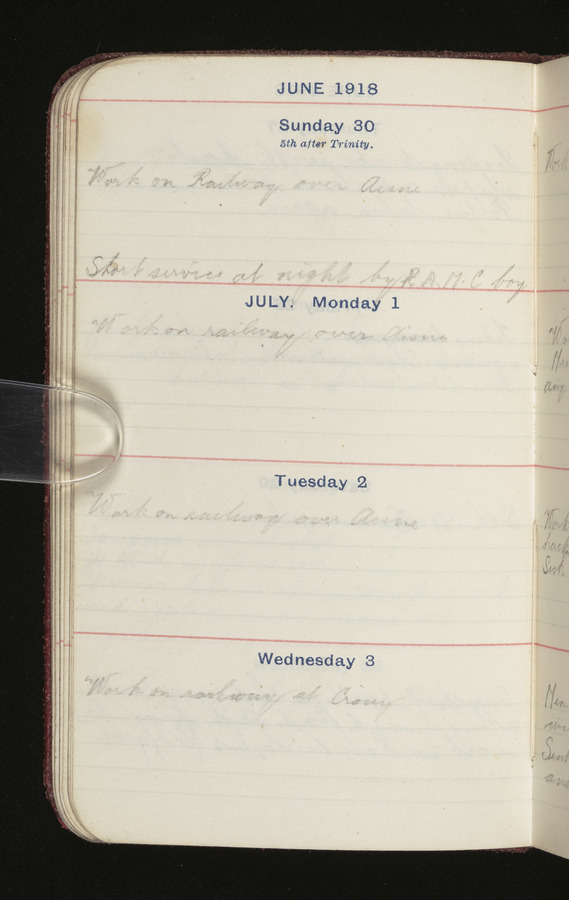 JUNE 1918
Sunday 30
5th after Trinity.
Work on Railway over Aisne
Short service at night by R.A.M.C boy
JULY. Monday 1
Work on railway over Aisne
Tuesday 2
Work on railway over Aisne
Wednesday 3
Work on railway at